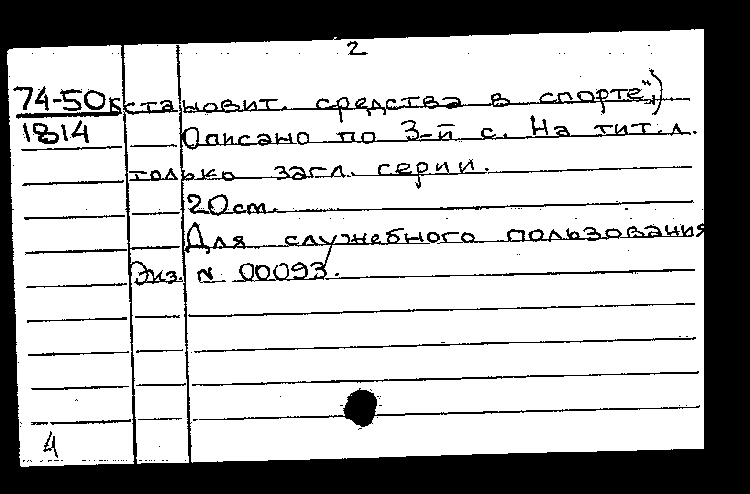 2
74-50к становит. средства в спорте",)
1814 Описано по 3-й с. На тит. л.
только загл. серии.
20 см.
Для служебного пользования
Экз. N 00093.
4